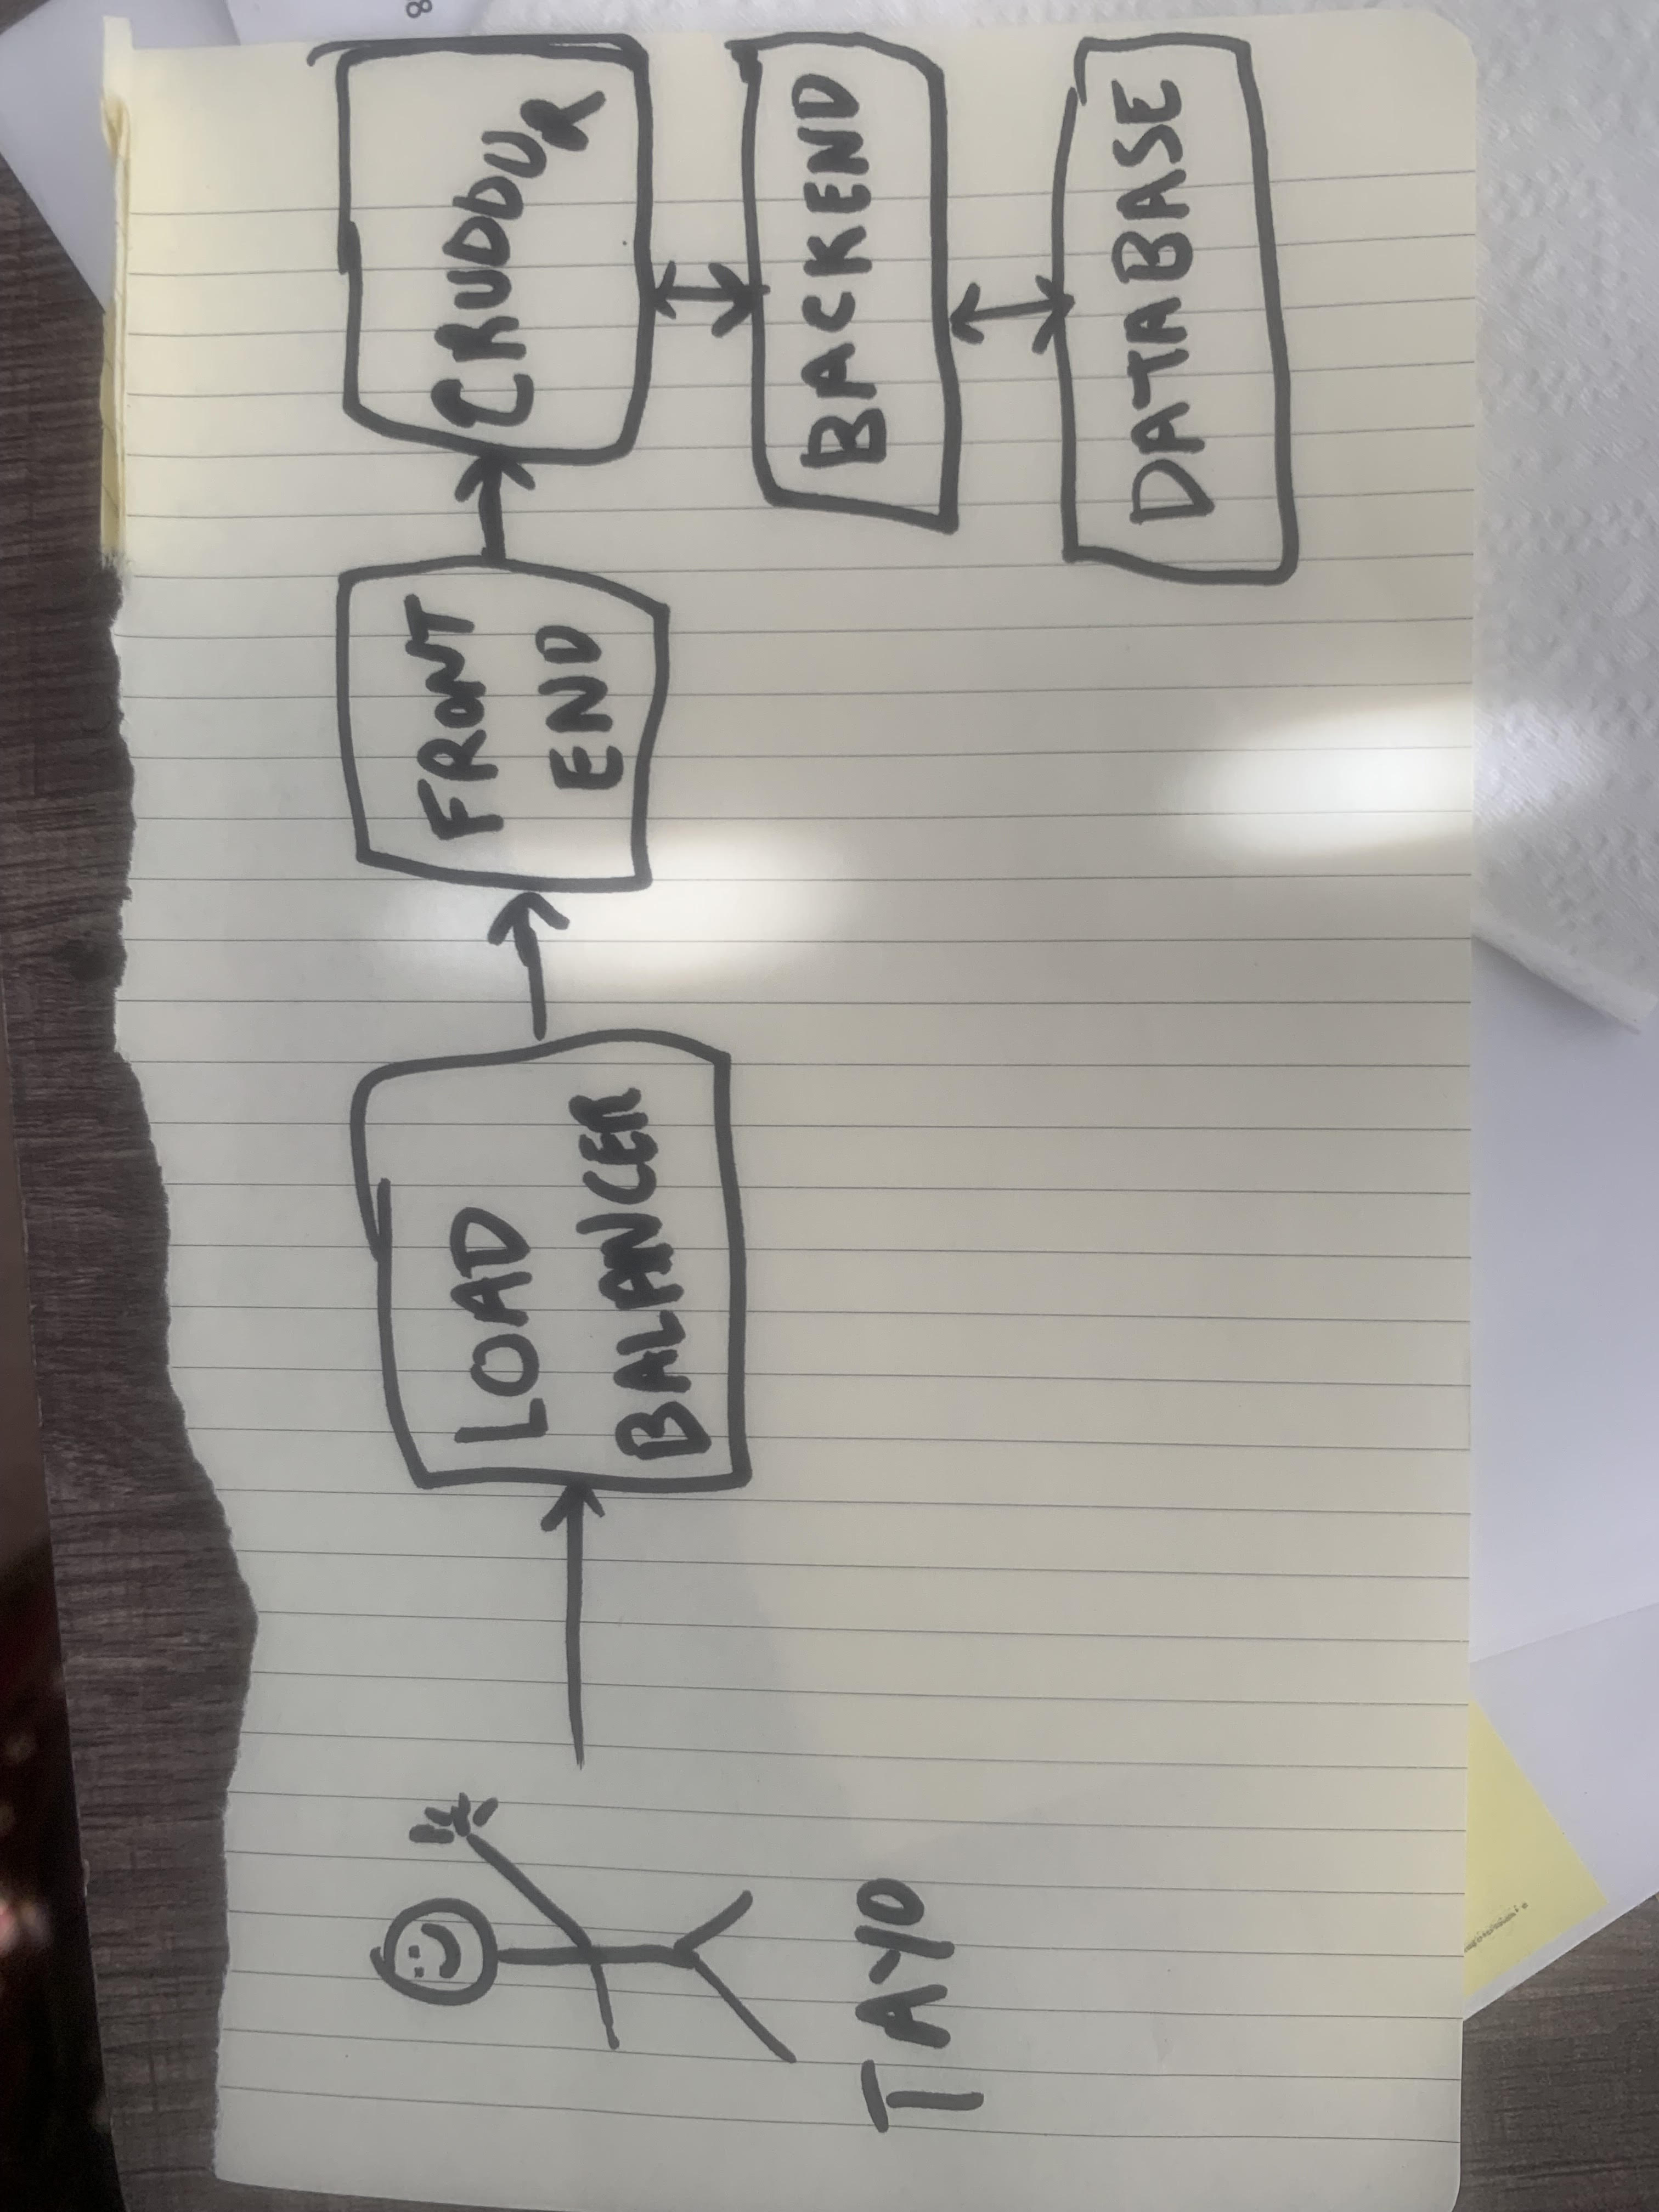 TAYO
LOAD
BALANCER
FRONT
END
CRUDDUR
BACKEND
DATABASE
8